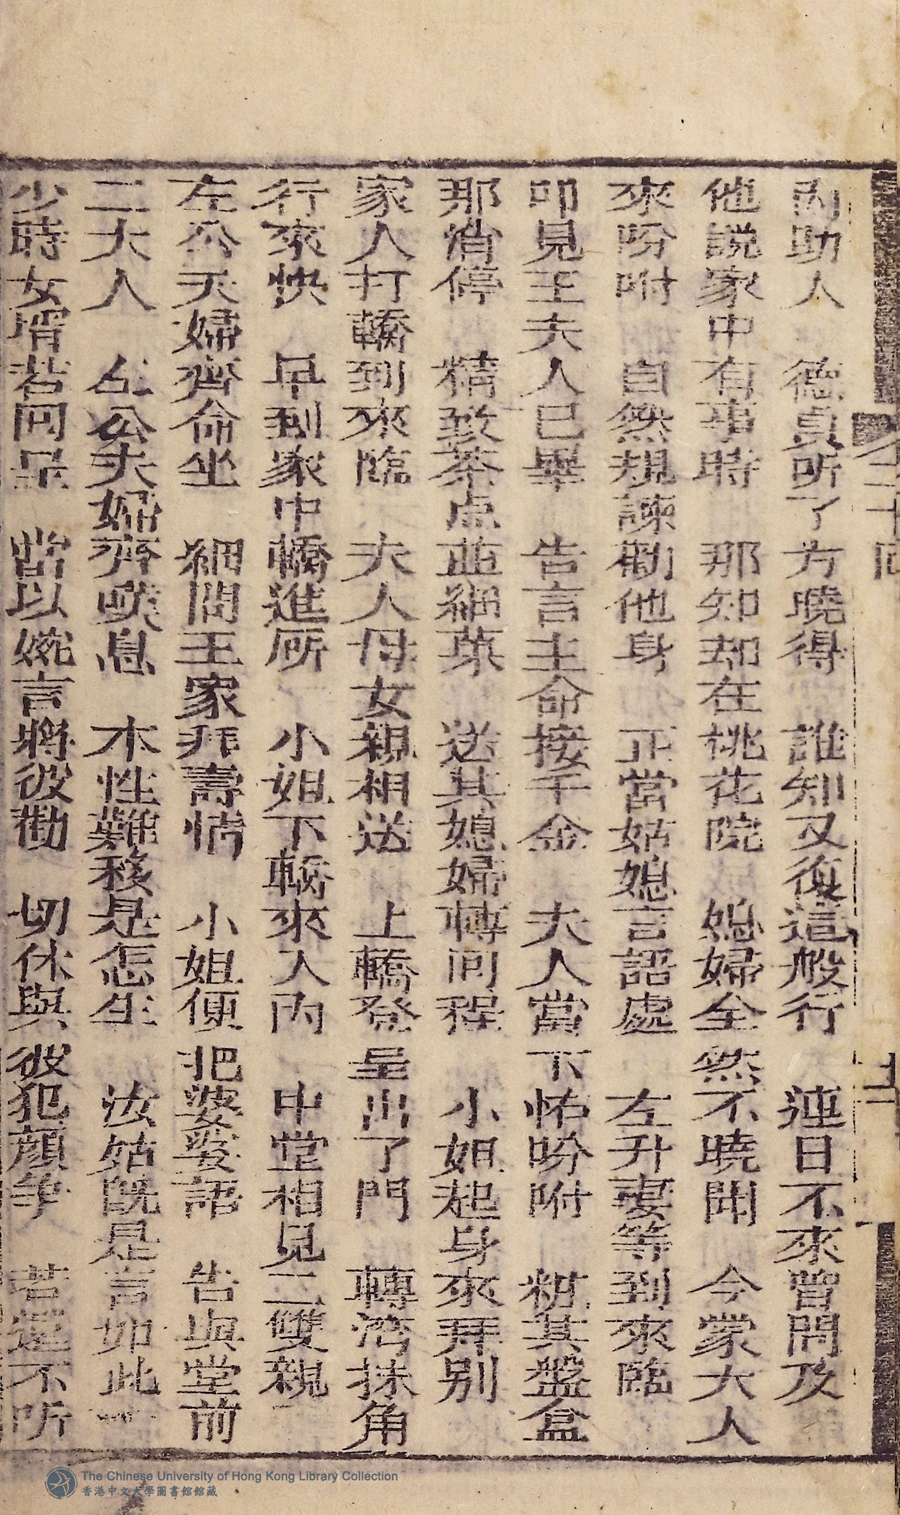 內助人 德貞听了方曉得 誰知又復這般行 連日不來曾問及
他説家中有事時 那知却在桃花院 媳婦全然不曉聞 今蒙大人
來吩咐 自然規諫勸他身 正當姑媳言語處 左升妻等到來臨
叩見王夫人已畢 告言主命接千金 夫人當下怖吩咐 粧其盤盒
那消停 精致茶点並細菓 送其媳婦轉回程 小姐起身來拜别
家人打轎到來臨 夫人母女親相送 上轎登呈出了門 轉湾抹角
行來快 早到家中轎進所 小姐下轎來入內 中堂相見二雙親
左公夫婦齊命坐 細問王家拜壽情 小姐便把婆婆語 告與堂前
二大人 左公夫婦齊嘆息 本性難移是怎生 汝姑既是言如此
少時女壻若回呈 當以婉言將彼勸 切休與彼犯顔爭 若還不听
二十回
The Chinese University of Hong Kong Library Collection
香港中文大學圖書館館藏